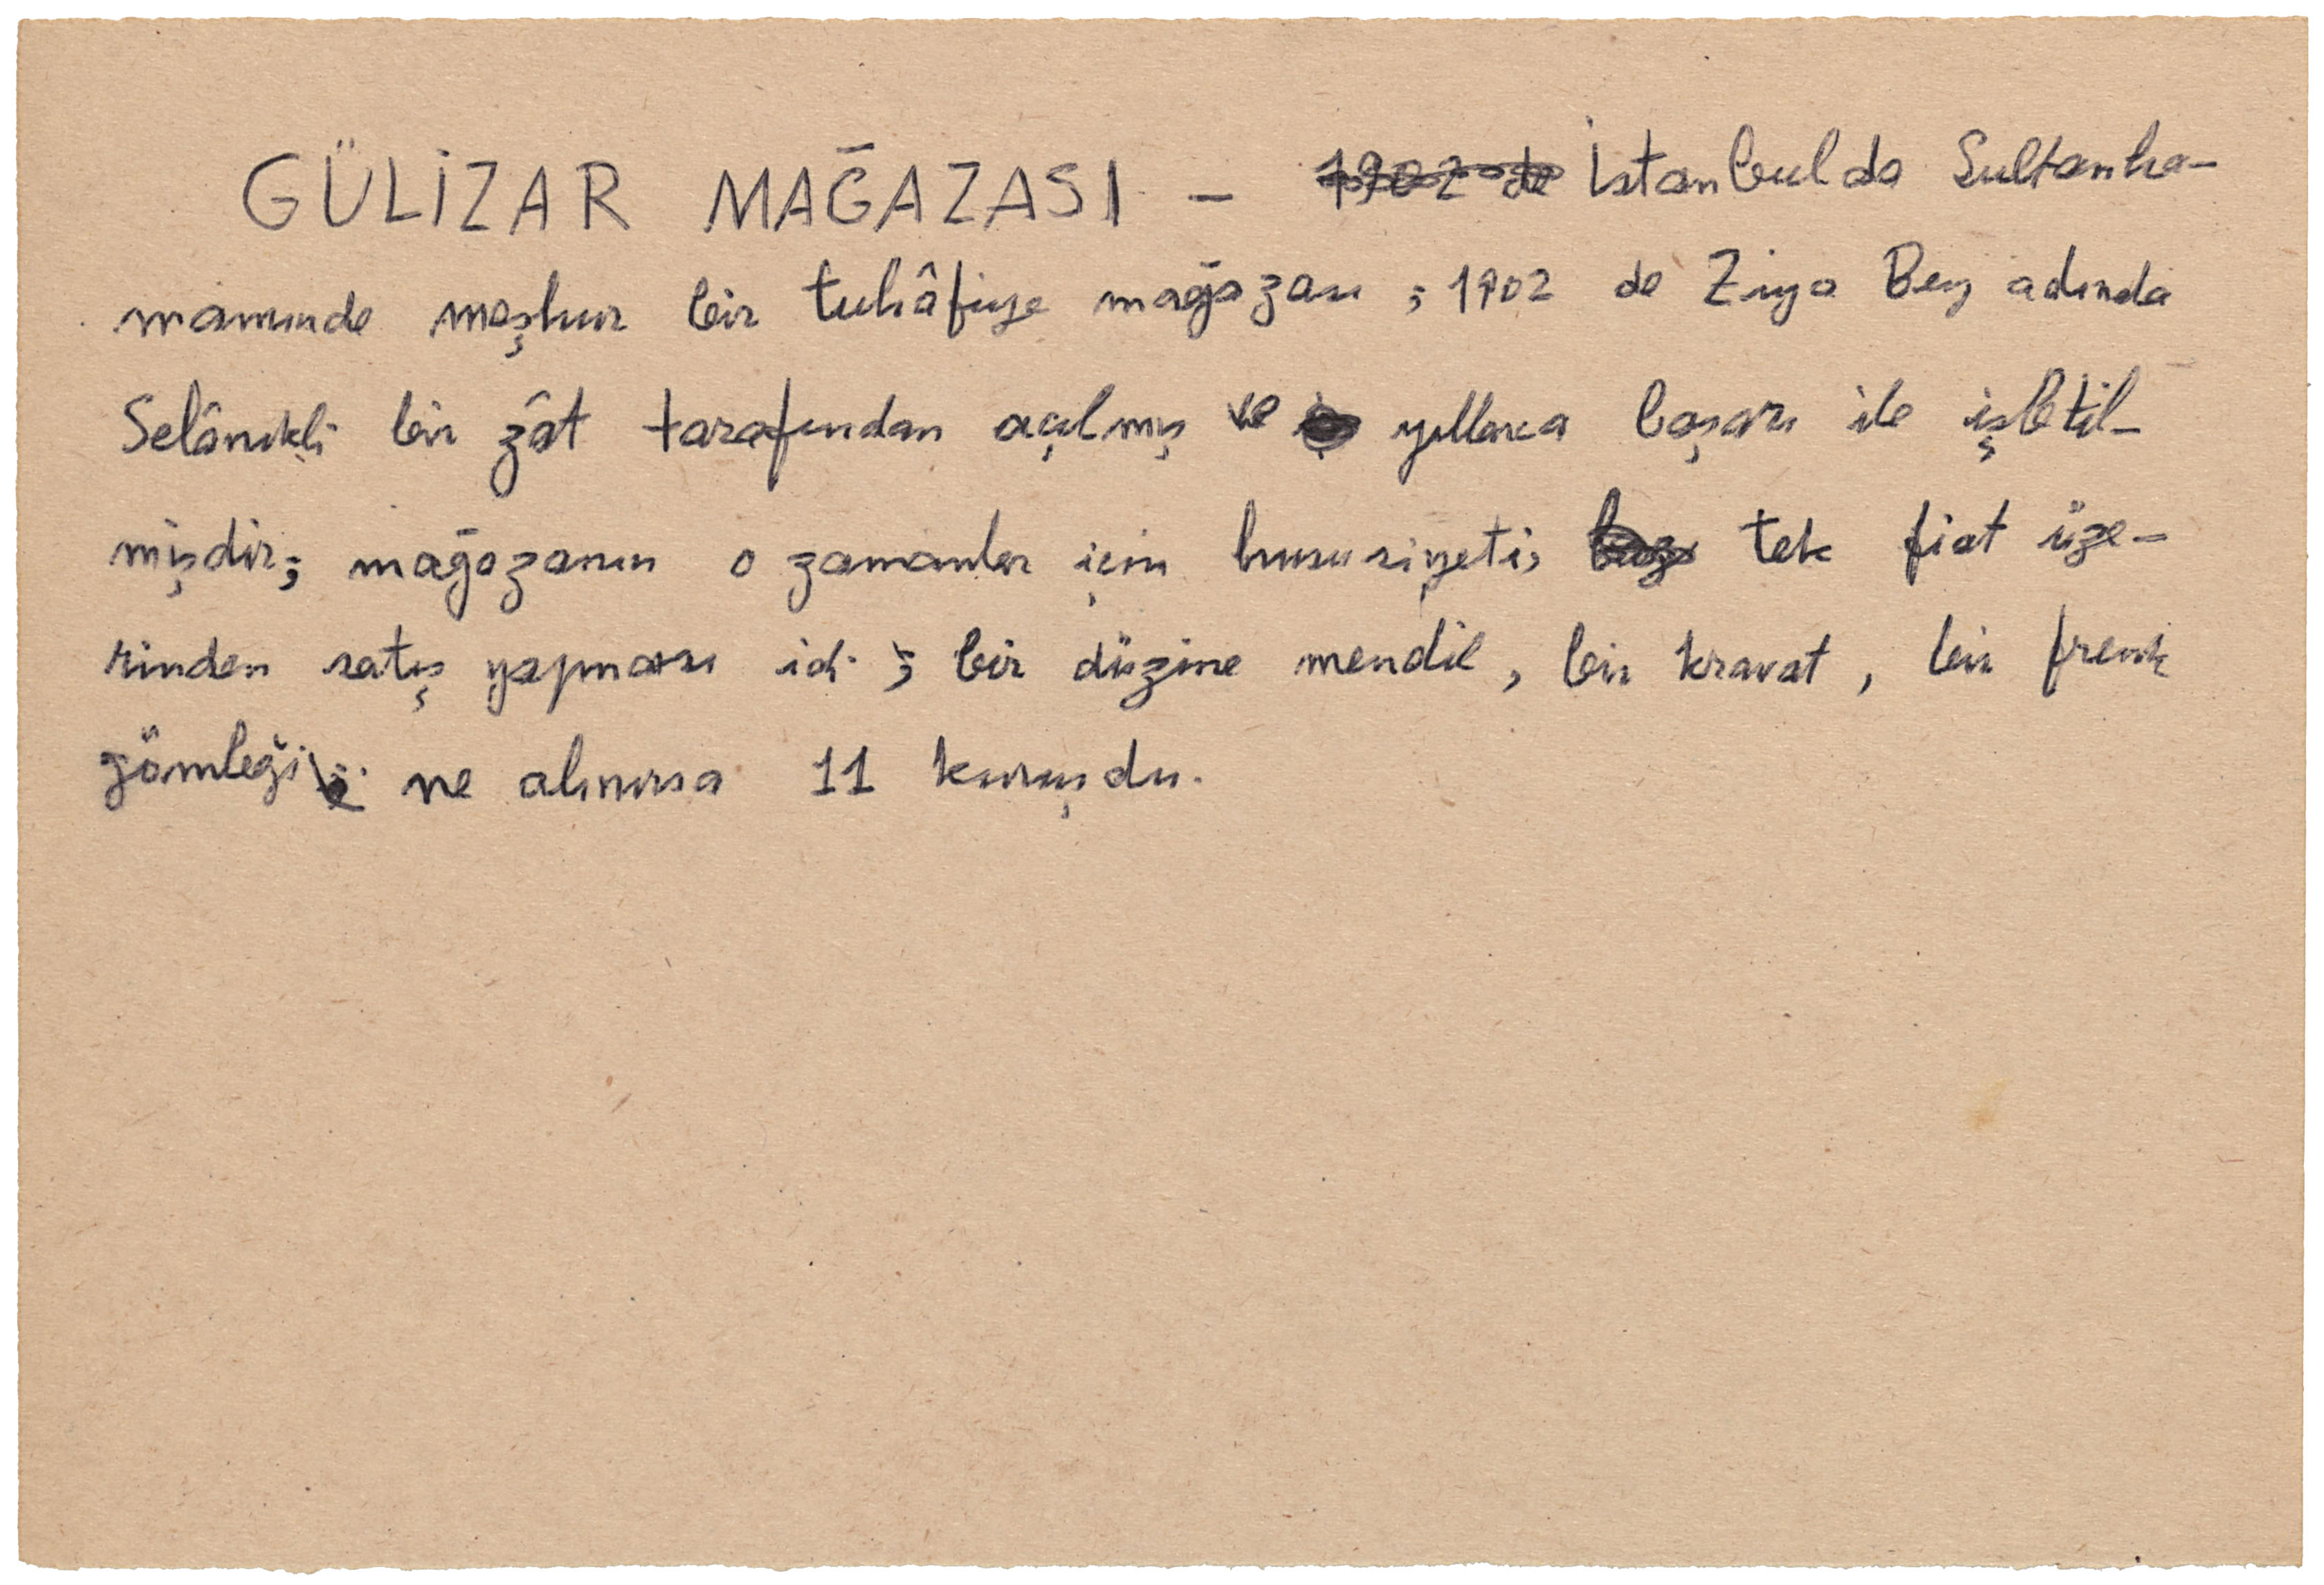 GÜLİZAR MAĞAZASI – İstanbulda Sultanha-
mamında meşhur bir tuhâfiye mağazası ; 1902 de Ziya Bey adında
Selânikli bir zât tarafından açılmış ve yıllarca başarı ile işletil-
mişdir; mağazanın o zamanlar için hususiyeti, tek fiat üze-
rinden satış yapması idi ; bir düzine mendil, bir kravat, bir frenk
gömleği ne alınırsa 11 kuruşdu.